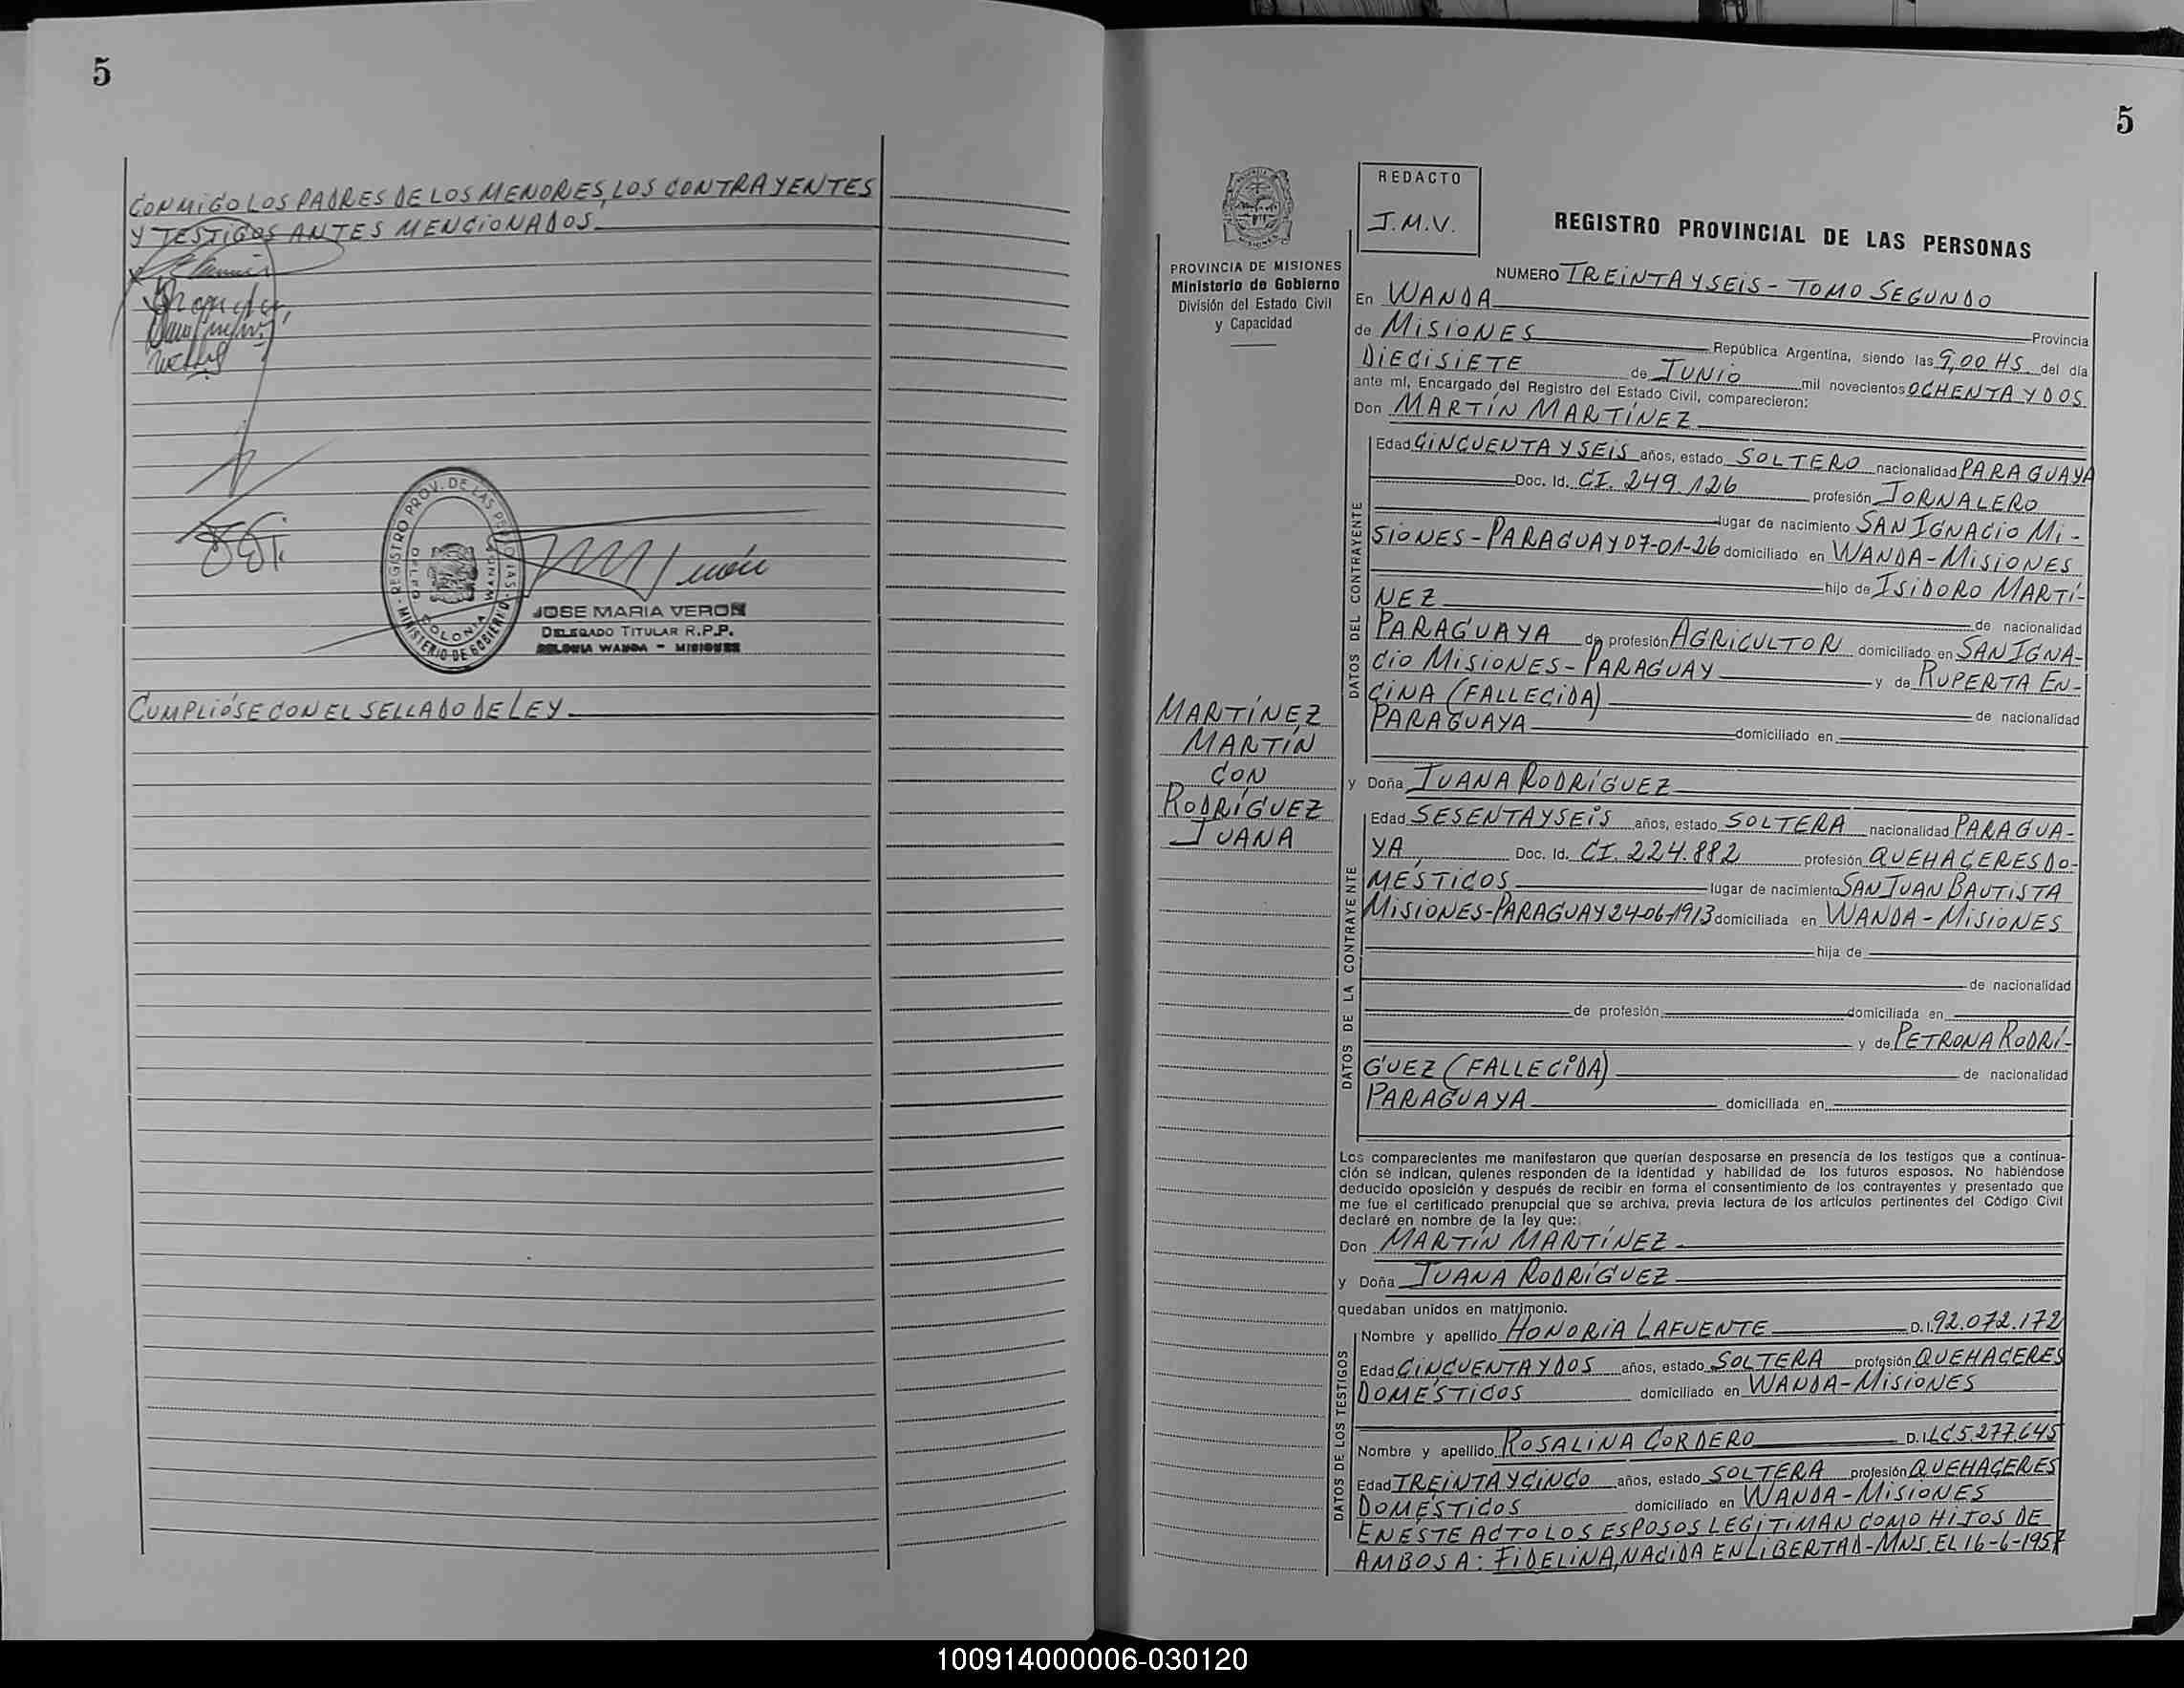 5
CONMIGO LOS PADRES DE LOS MENORES, LOS CONTRAYENTES
Y TESTIGOS ANTES MENCIONADOS.
REGISTRO PROV. DE LAS PERSONAS
MINISTERIO DE GOBIERNO
COLONIA WANDA
JOSE MARIA VERON
DELEGADO TITULAR R.P.P.
COLONIA WANDA - MISIONES
CUMPLIÓSE CON EL SELLADO DE LEY
5
PROVINCIA DE MISIONES
Ministerio de Gobierno
División del Estado Civil
y Capacidad
MARTÍNEZ
MARTÍN
CON
RODRÍGUEZ
JUANA
REDACTO
J.M.V.
REGISTRO PROVINCIAL DE LAS PERSONAS
NUMERO TREINTA Y SEIS - TOMO SEGUNDO
En WANDA Provincia
de MISIONES República Argentina, siendo las 9,00 HS. del día
DIECISIETE de JUNIO mil novecientos OCHENTA Y DOS
ante mí, Encargado del Registro del Estado Civil, comparecieron:
Don MARTÍN MARTÍNEZ
DATOS DEL CONTRAYENTE
Edad CINCUENTA Y SEIS años, estado SOLTERO nacionalidad PARAGUAYA
Doc. Id. CI. 249.126 profesión JORNALERO
lugar de nacimiento SAN IGNACIO MI-
SIONES - PARAGUAY 07-01-26 domiciliado en WANDA - MISIONES
hijo de ISIDORO MARTÍ-
NEZ de nacionalidad
PARAGUAYA de profesión AGRICULTOR domiciliado en SAN IGNA-
CIO MISIONES - PARAGUAY y de RUPERTA EN-
CINA (FALLECIDA) de nacionalidad
PARAGUAYA domiciliado en
y Doña JUANA RODRÍGUEZ
DATOS DE LA CONTRAYENTE
Edad SESENTA Y SEIS años, estado SOLTERA nacionalidad PARAGUA-
YA, Doc. Id. CI. 224.882 profesión QUEHACERES DO-
MESTICOS lugar de nacimiento SAN JUAN BAUTISTA
MISIONES - PARAGUAY 24-06-1913 domiciliada en WANDA - MISIONES
hija de
de nacionalidad
de profesión domiciliada en
y de PETRONA RODRÍ-
GUEZ (FALLECIDA) de nacionalidad
PARAGUAYA domiciliada en
Los comparecientes me manifestaron que querían desposarse en presencia de los testigos que a continua-
ción se indican, quienes responden de la identidad y habilidad de los futuros esposos. No habiéndose
deducido oposición y después de recibir en forma el consentimiento de los contrayentes y presentado que
me fue el certificado prenupcial que se archiva, previa lectura de los artículos pertinentes del Código Civil
declaré en nombre de la ley que:
Don MARTÍN MARTÍNEZ
y Doña JUANA RODRÍGUEZ
quedaban unidos en matrimonio.
DATOS DE LOS TESTIGOS
Nombre y apellido HONORIA LAFUENTE D.I. 92.072.172
Edad CINCUENTA Y DOS años, estado SOLTERA profesión QUEHACERES
DOMÉSTICOS domiciliado en WANDA - MISIONES
Nombre y apellido ROSALINA CORDERO D.I. LC 5.277.645
Edad TREINTA Y CINCO años, estado SOLTERA profesión QUEHACERES
DOMÉSTICOS domiciliado en WANDA - MISIONES
EN ESTE ACTO LOS ESPOSOS LEGITIMAN COMO HIJOS DE
AMBOS A: FIDELINA, NACIDA EN LIBERTAD - MNS. EL 16-6-1957
100914000006-030120